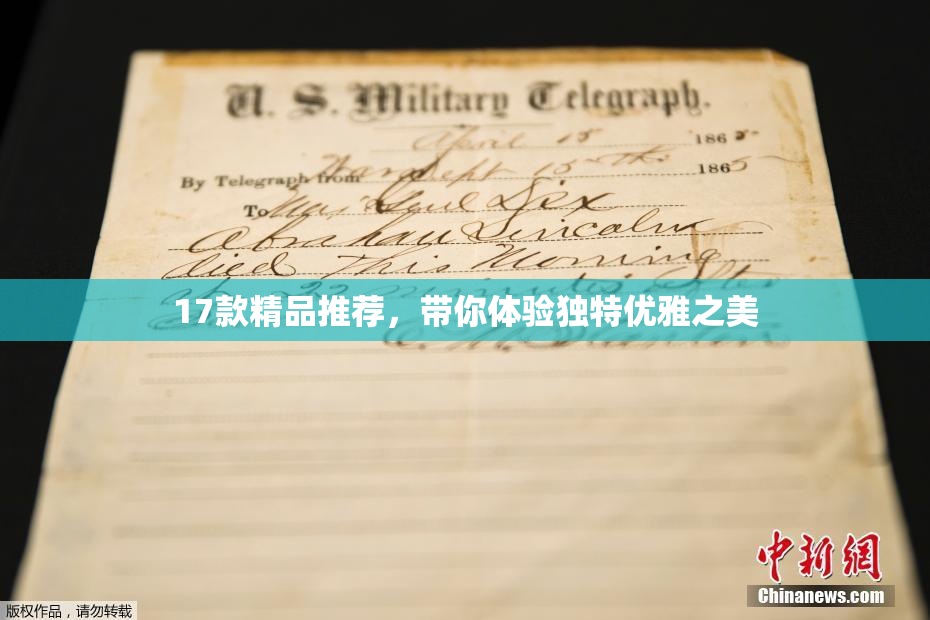 U. S. Military Telegraph.
April 15 1865
By Telegraph from War Dept 15th 1865
To Maj Genl Dix
Abraham Lincoln
died This Morning
at 22 minutes after
17款精品推荐，带你体验独特优雅之美
E. M. Stanton
中新网
Chinanews.com
版权作品，请勿转载